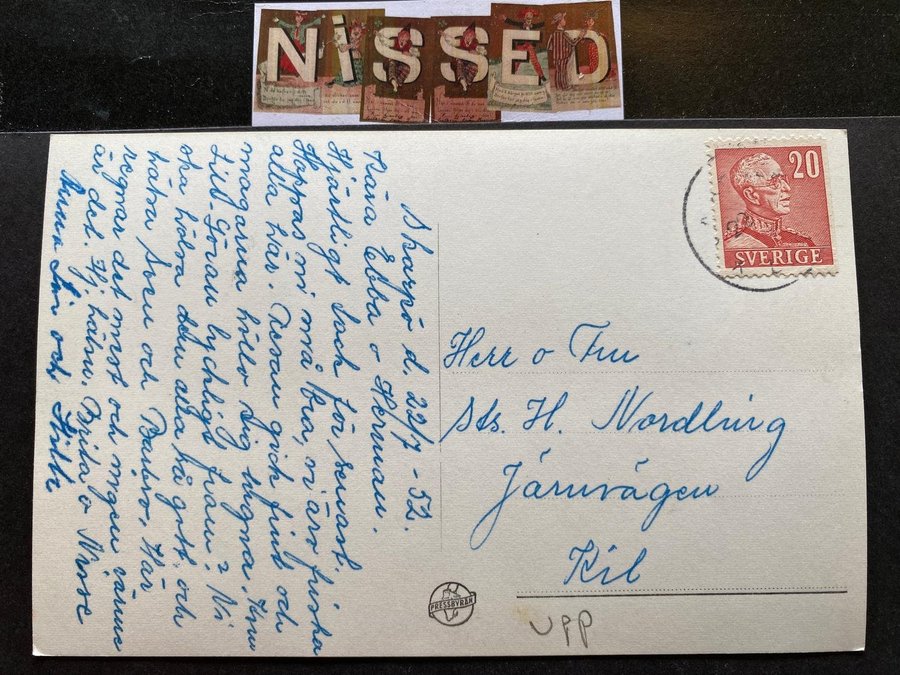 NISSED
20
SVERIGE
Skarpö d. 22/7 - 52.
Kära Ebba o Herman.
Hjärtligt tack för senast.
Hoppas ni må bra, vi äro friska
alla här. Resan gick fint och
magarna höllo sig lugna. Kom
Lill-Göran lyckligt fram? Vi
ska hälsa dem alla så gott och
hälsa Sven och Barbro. Här
regnar det mest och ingen värme
är det. Hj. hälsn. Brita o Nisse
och
Herr o Fru
Sts. H. Nordlung
Järnvägen
Kil
PRESSBYRÅN
UPP